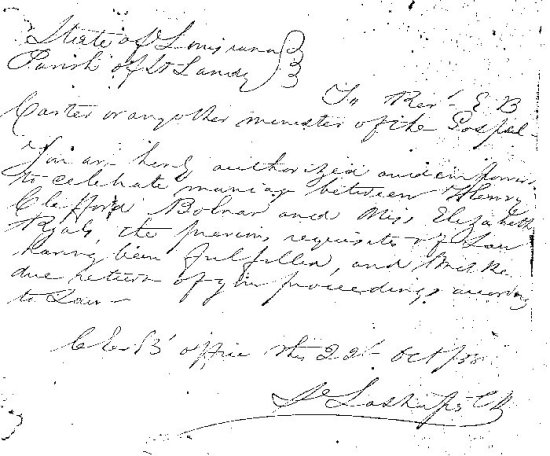 State of Louisiana
Parish of St Landry
To Rev. E B
Carter or any other minister of the Gospel
You are hereby authorized and empowered
to celebrate marriage between Henry
Clifford Bolnar and Miss Elizabeth
the previous requisites of Law
having been fulfilled, and make
due return of your proceedings according
to Law
office this 22d Oct